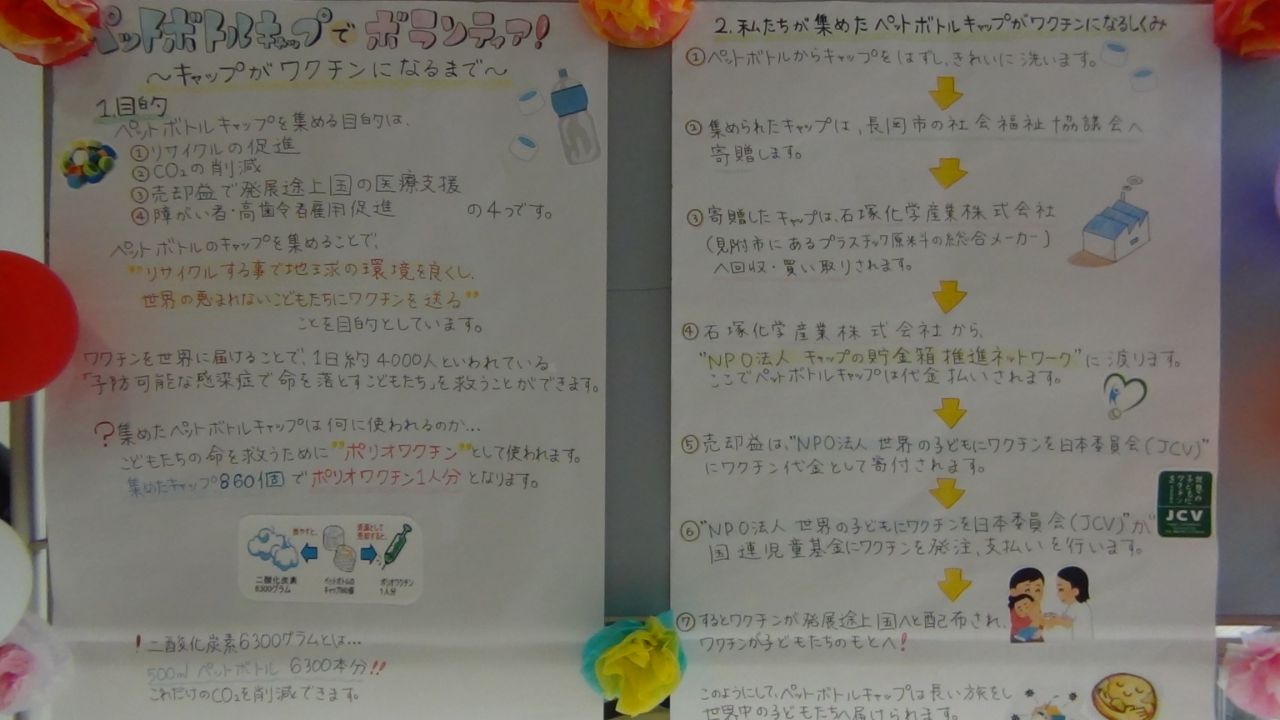 ペットボトルキャップでボランティア!
～キャップがワクチンになるまで～
1.目的
ペットボトルキャップを集める目的は、
①リサイクルの促進
②CO₂の削減
③売却益で発展途上国の医療支援
④障がい者・高齢者雇用促進 の4つです。
ペットボトルのキャップを集めることで、
"リサイクルする事で地球の環境を良くし、
世界の恵まれないこどもたちにワクチンを送る"
ことを目的としています。
ワクチンを世界に届けることで、1日約4000人といわれている
「予防可能な感染症で命を落とすこどもたち」を救うことができます。
?集めたペットボトルキャップは何に使われるのか…
こどもたちの命を救うために"ポリオワクチン"として使われます。
集めたキャップ860個でポリオワクチン1人分となります。
燃やすと、
資源として
売却すると、
二酸化炭素
6300グラム
ペットボトルの
ポリオワクチン
1人分
!二酸化炭素6300グラムとは…
500mlペットボトル 6300本分!!
これだけのCO₂を削減できます。
2.私たちが集めたペットボトルキャップがワクチンになるしくみ
①ペットボトルからキャップをはずし、きれいに洗います。
②集められたキャップは、長岡市の社会福祉協議会へ
寄贈します。
③寄贈したキャップは、石塚化学産業株式会社
(見附市にあるプラスチック原料の総合メーカー)
へ回収・買い取りされます。
④石塚化学産業株式会社から、
"NPO法人 キャップの貯金箱推進ネットワーク"に渡ります。
ここでペットボトルキャップは代金払いされます。
⑤売却益は、"NPO法人 世界の子どもにワクチンを日本委員会(JCV)"
にワクチン代金として寄付されます。
世界の
子どもに
ワクチンを
JCV
⑥"NPO法人 世界の子どもにワクチンを日本委員会(JCV)"が
国連児童基金にワクチンを発注、支払いを行います。
⑦するとワクチンが発展途上国へと配布され、
ワクチンが子どもたちのもとへ!
このようにして、ペットボトルキャップは長い旅をし
世界中の子どもたちへ届けられます。